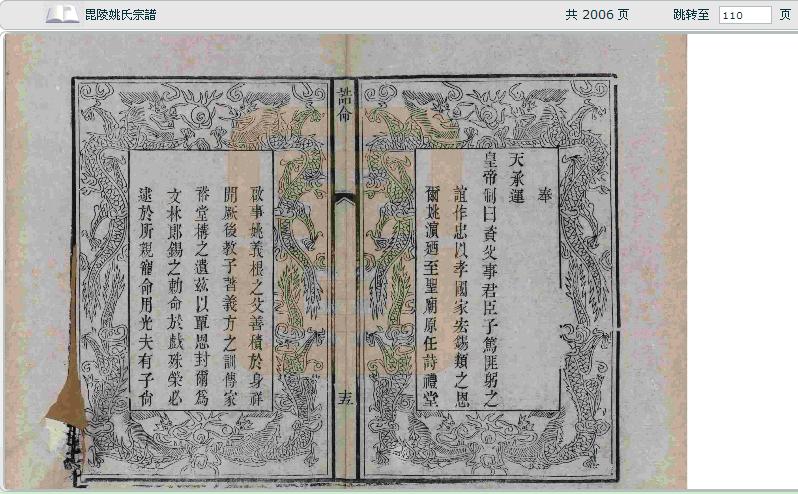 毗陵姚氏宗譜
共 2006 页
跳转至 110 页
奉
天承運
皇帝制曰資父事君臣子篤匪躬之
誼作忠以孝國家宏錫類之恩
爾姚濱廼至聖廟原任詩禮堂
誥命
十五
啟事姚義根之父善積於身祥
開厥後教子著義方之訓傳家
裕堂構之遺茲以覃恩封爾為
文林郎錫之勅命於戲殊榮必
逮於所親寵命用光夫有子尙